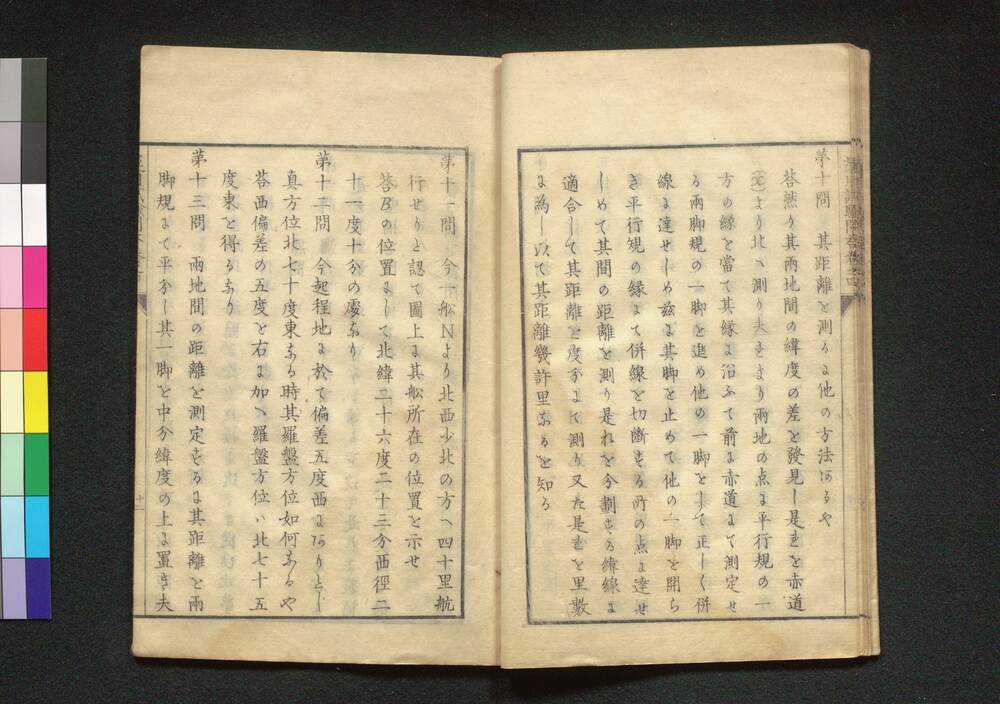 第十問　其距離を測るに他の方法ありや
答然り其兩地間の緯度の差を發見し是を赤道
より北へ測り夫より兩地の点に平行規の一
方の縁を當て其縁に沿ふて前に赤道にて測定せ
る兩脚規の一脚を進め他の一脚をして正しく併
線に達せしめ茲に其脚を止めて他の一脚を開ら
き平行規の縁にて併線を切斷する所の点に達せ
しめて其間の距離を測り是れを分劃する緯線に
適合して其距離を度分にて測り又た是を里數
に為し以て其距離幾許里なるを知る
第十一問　今一舩Nより北西少北の方へ四十里航
行せりと認て圖上に其舩所在の位置を示せ
答Bの位置にして北緯二十六度二十三分西徑二
十一度十分の處なり
第十二問　今起程地に於て偏差五度西にありとし
真方位北七十度東なる時其羅盤方位如何なるや
答西偏差の五度を右に加へ羅盤方位ハ北七十五
度東を得るなり
第十三問　兩地間の距離を測定するに其距離を兩
脚規にて平分し其一脚を中分緯度の上に置き夫
十一